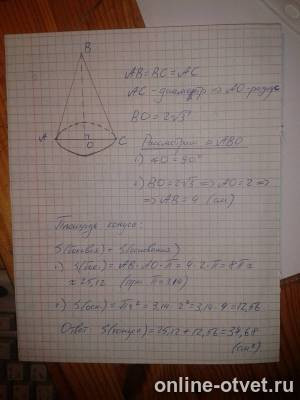 B
A
C
O
AB=BC=AC
AC - диаметр => AO-радиус
BO=2√3
Рассмотрим ABO
1) ∠O=90°
2) BO=2√3 => AO=2 =>
=> AB=4 (см)
Площадь конуса:
S(боковая) + S(основания)
1) S(бок.)=AB·AO·π=4·2·π=8π=
=25,12 (при π=3,14)
2) S(осн.)=πr²=3,14·2²=3,14·4=12,56
Ответ: S(конуса)=25,12+12,56=37,68
(см²)
online-otvet.ru